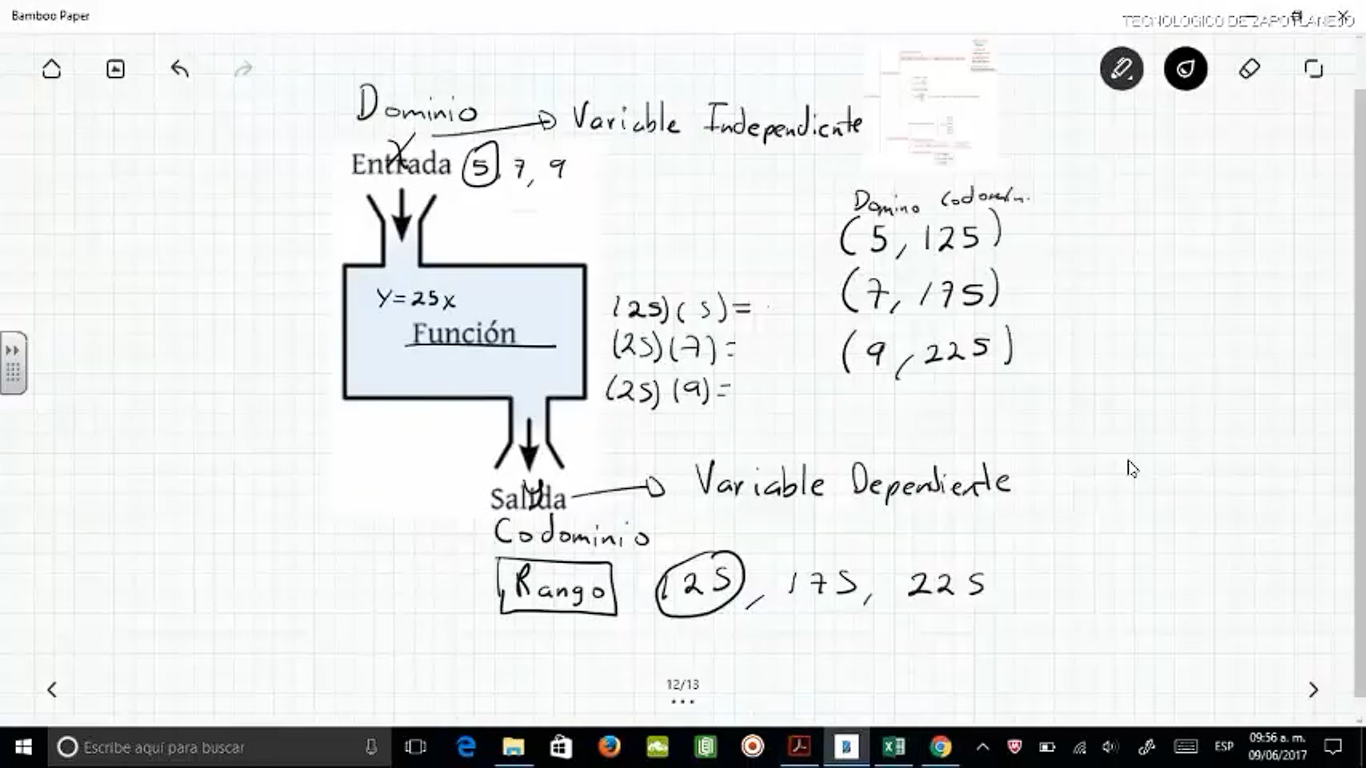 Bamboo Paper
TECNOLOGICO DE ZAPOTLANEJO
Dominio
Variable Independiente
x
Entrada 5, 7, 9
Domino
(5, 125)
(7, 175)
(9, 225)
Y=25x
Función
(25)(5)=
(25)(7)=
(25)(9)=
Salida
y
Variable Dependiente
Codominio
Rango 125, 175, 225
12/13
Escribe aquí para buscar
ESP
09:56 a. m.
09/06/2017